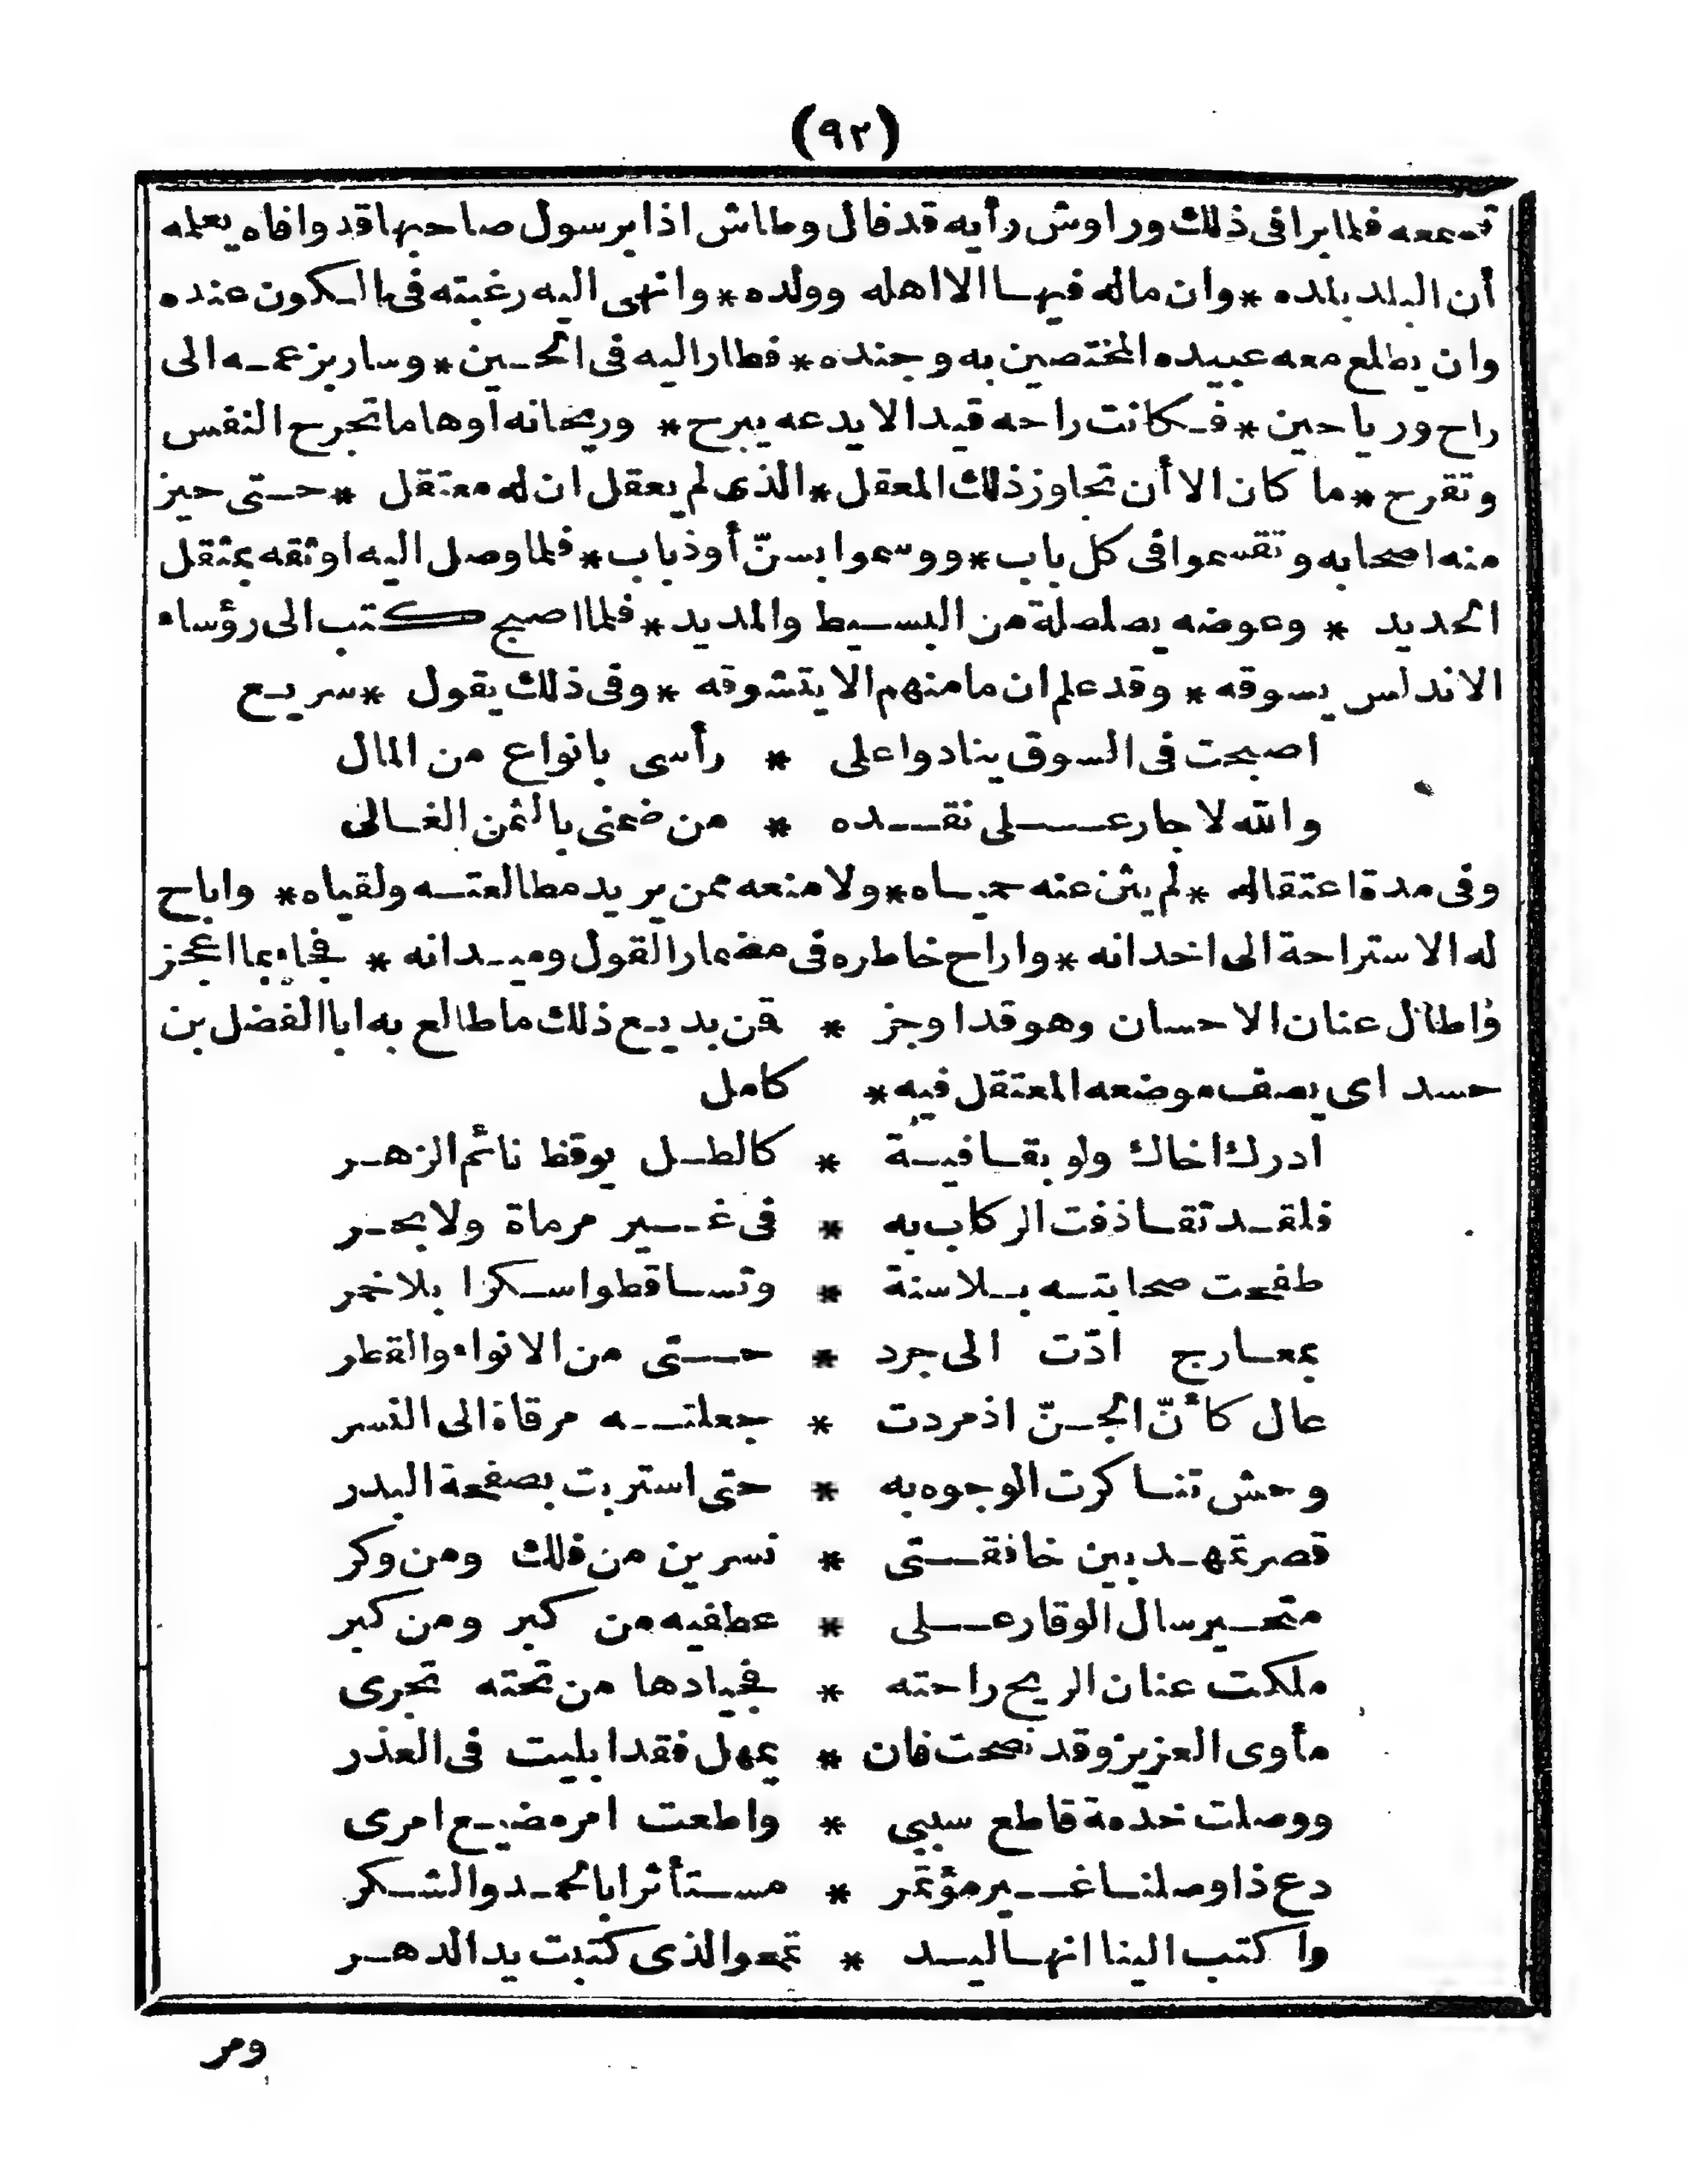 (٩٢)
تسمعه فلما برا فى ذلك وراوش رأيه قد فال وطاش اذا برسول صاحبها قد وافاه يعلمه
أن البلد بلده * وان ماله فيها الا اهله وولده * وانهى اليه رغبته فى الكون عنده
وان يطلع معه عبيده المختصين به وجنده * فطار اليه فى الحين * وسار بزعمه الى
راح ورياحين * فكانت راحه قيدا لا يدعه يبرح * وريحانه آوها ما تجرح النفس
وتقرح * ما كان الا أن تجاوز ذلك المعقل * الذى لم يعقل ان له معتقل * حتى حيز
منه اصحابه وتقسموا فى كل باب * ووسموا بسنّ أو ذباب * فلما وصل اليه اوثقه بمثقل
الحديد * وعوضه بصلصلة من البسيط والمديد * فلما اصبح كتب الى رؤساء
الاندلس يسوقه * وقد علم ان ما منهم الا يتشوقه * وفى ذلك يقول * سريع
اصبحت فى السوق ينادوا على * رأسى بانواع من المال
والله لا جار على نقده * من ضمنى بالثمن الغالى
وفى مدة اعتقاله * لم يثن عنه حياه * ولا منعه ممن يريد مطالعته ولقياه * واباح
له الاستراحة الى اخدانه * واراح خاطره فى مضمار القول وميدانه * فجاء بما اعجز
واطال عنان الاحسان وهو قد اوجز * فمن بديع ذلك ما طالع به ابا الفضل بن
حسداى يصف موضعه المعتقل فيه * كامل
ادرك اخاك ولو بقافية * كالطل يوقظ نائم الزهر
فلقد تقاذفت الركاب به * فى غير مرماة ولا بحر
طفحت صحابته بلا سنة * وتساقطوا سكرا بلا خمر
بمعارج ادّت الى جرد * حتى من الانواء والقطر
عال كأنّ الجنّ اذ مردت * جعلته مرقاة الى النسر
وحش تناكرت الوجوه به * حتى استربت بصفحة البدر
قصر تمهد بين خافقتى * نسرين من فلك ومن وكر
متحير سال الوقار على * عطفيه من كبر ومن كبر
ملكت عنان الريح راحته * فجيادها من تحته تجرى
مأوى العزيز وقد نصحت فان * يمهل فقد ابليت فى العذر
ووصلت خدمة قاطع سببى * واطعت امر مضيع امرى
دع ذا وصلنا غير مؤتمر * مستأثرا بالحمد والشكر
واكتب الينا انها ليد * تمحو الذى كتبت يد الدهر
ومر